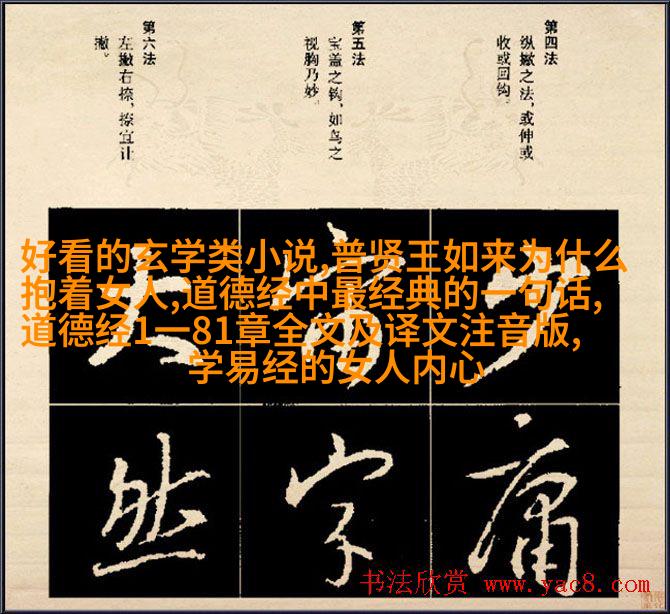 第四法
纵撇之法，或伸或
收或回钩。
第五法
宝盖之钩，如鸟之
视胸乃妙。
第六法
左撇右捺，捺宜让
撇。
好看的玄学类小说,普贤王如来为什么
抱着女人,道德经中最经典的一句话,
道德经1一81章全文及译文注音版,
学易经的女人内心
庸
字
然
书法欣赏 www.yac8.com